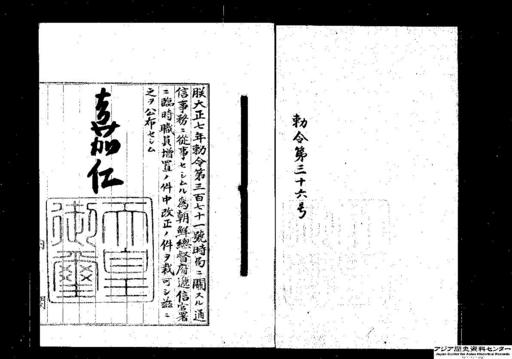 勅令第三十六号
朕大正七年勅令第三百七十一號時局ニ關スル通
信事務ニ從事セシムル爲朝鮮總督府遞信官署
ニ臨時職員增置ノ件中改正ノ件ヲ裁可シ茲ニ
之ヲ公布セシム
嘉仁
天皇御璽
内閣
アジア歴史資料センター
Japan Center for Asian Historical Records